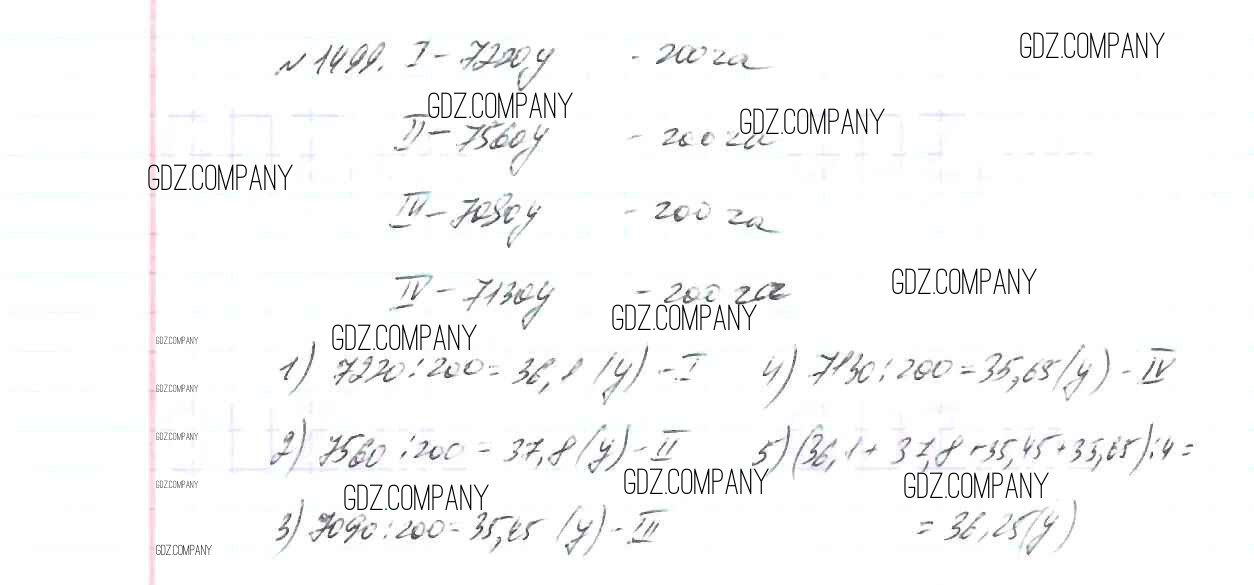 №1499. I - 7220ц - 200 га
GDZ.COMPANY
GDZ.COMPANY
GDZ.COMPANY
II - 7560ц - 200 га
GDZ.COMPANY
III - 7090ц - 200 га
GDZ.COMPANY
IV - 7130ц - 200 га
GDZ.COMPANY
GDZ.COMPANY
GDZ.COMPANY
1) 7220:200=36,1 (ц) - I 4) 7130:200=35,65(ц) - IV
GDZ.COMPANY
GDZ.COMPANY
2) 7560:200=37,8(ц) - II 5) (36,1+37,8+35,45+35,65):4=
GDZ.COMPANY
GDZ.COMPANY
GDZ.COMPANY
GDZ.COMPANY
3) 7090:200=35,45 (ц) - III =36,25(ц)
GDZ.COMPANY